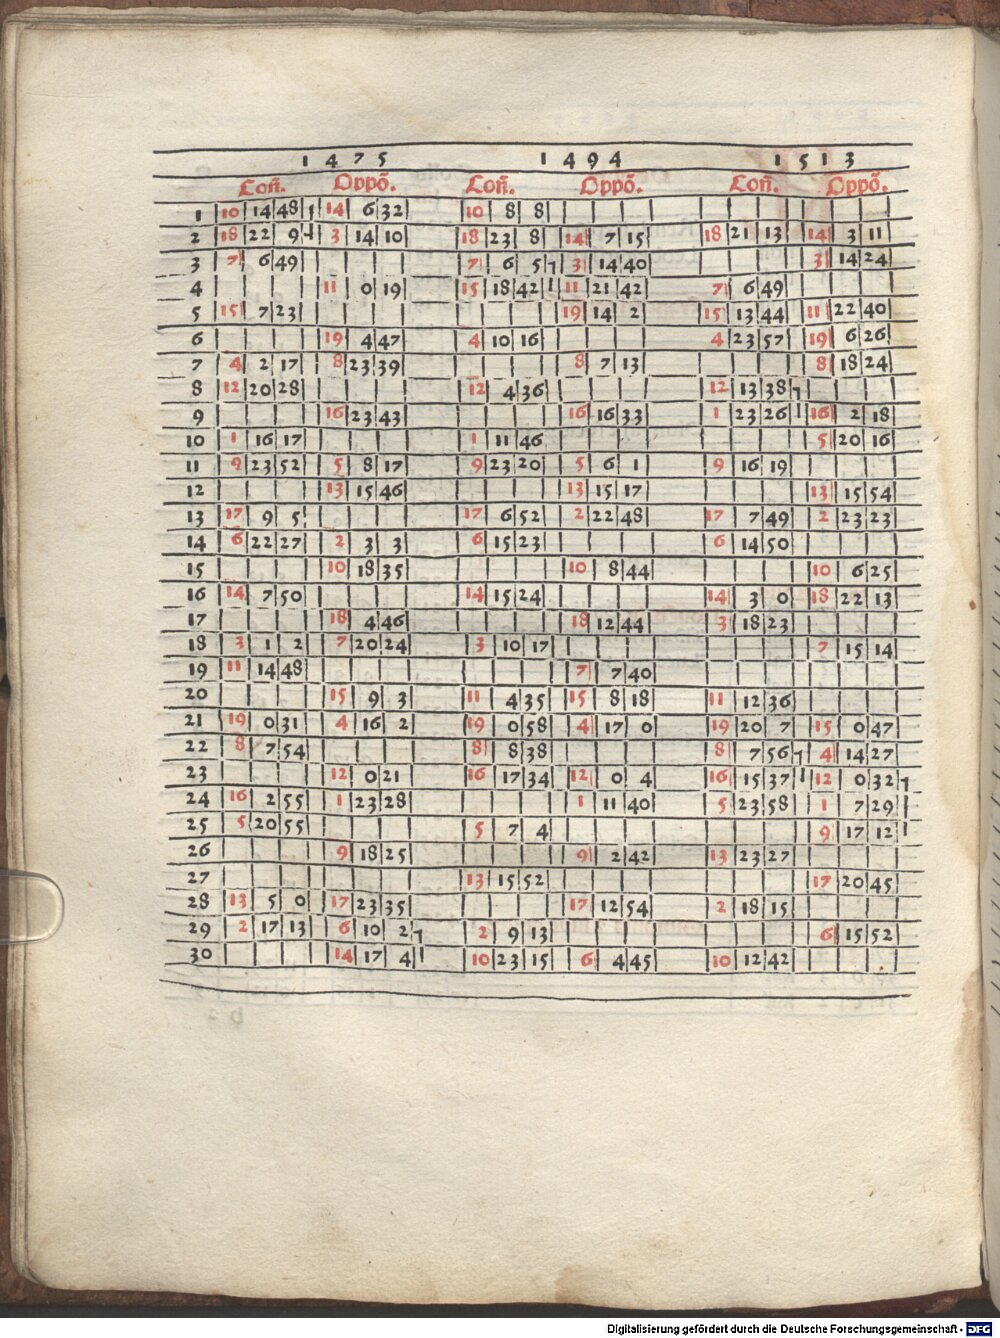 1 4 7 5 1 4 9 4 1 5 1 3
Coñ. Oppõ. Coñ. Oppõ. Coñ. Oppõ.
1 10 14 48 14 6 32 10 8 8
2 18 22 9 3 14 10 18 23 8 14 7 15 18 21 13 14 3 11
3 7 6 49 7 6 5 3 14 40 3 14 24
4 11 0 19 15 18 42 11 21 42 7 6 49
5 15 7 23 19 14 2 15 13 44 11 22 40
6 19 4 47 4 10 16 4 23 57 19 6 26
7 4 2 17 8 23 39 8 7 13 8 18 24
8 12 20 28 12 4 36 12 13 38
9 16 23 43 16 16 33 1 23 26 16 2 18
10 1 16 17 1 11 46 5 20 16
11 9 23 52 5 8 17 9 23 20 5 6 1 9 16 19
12 13 15 46 13 15 17 13 15 54
13 17 9 5 17 6 52 2 22 48 17 7 49 2 23 23
14 6 22 27 2 3 3 6 15 23 6 14 50
15 10 18 35 10 8 44 10 6 25
16 14 7 50 14 15 24 14 3 0 18 22 13
17 18 4 46 18 12 44 3 18 23
18 3 1 2 7 20 24 3 10 17 7 15 14
19 11 14 48 7 7 40
20 15 9 3 11 4 35 15 8 18 11 12 36
21 19 0 31 4 16 2 19 0 58 4 17 0 19 20 7 15 0 47
22 8 7 54 8 8 38 8 7 56 4 14 27
23 12 0 21 16 17 34 12 0 4 16 15 37 12 0 32
24 16 2 55 1 23 28 1 11 40 5 23 58 1 7 29
25 5 20 55 5 7 4 9 17 12
26 9 18 25 9 2 42 13 23 27
27 13 15 52 17 20 45
28 13 5 0 17 23 35 17 12 54 2 18 15
29 2 17 13 6 10 2 2 9 13 6 15 52
30 14 17 4 10 23 15 6 4 45 10 12 42
Digitalisierung gefördert durch die Deutsche Forschungsgemeinschaft - DFG